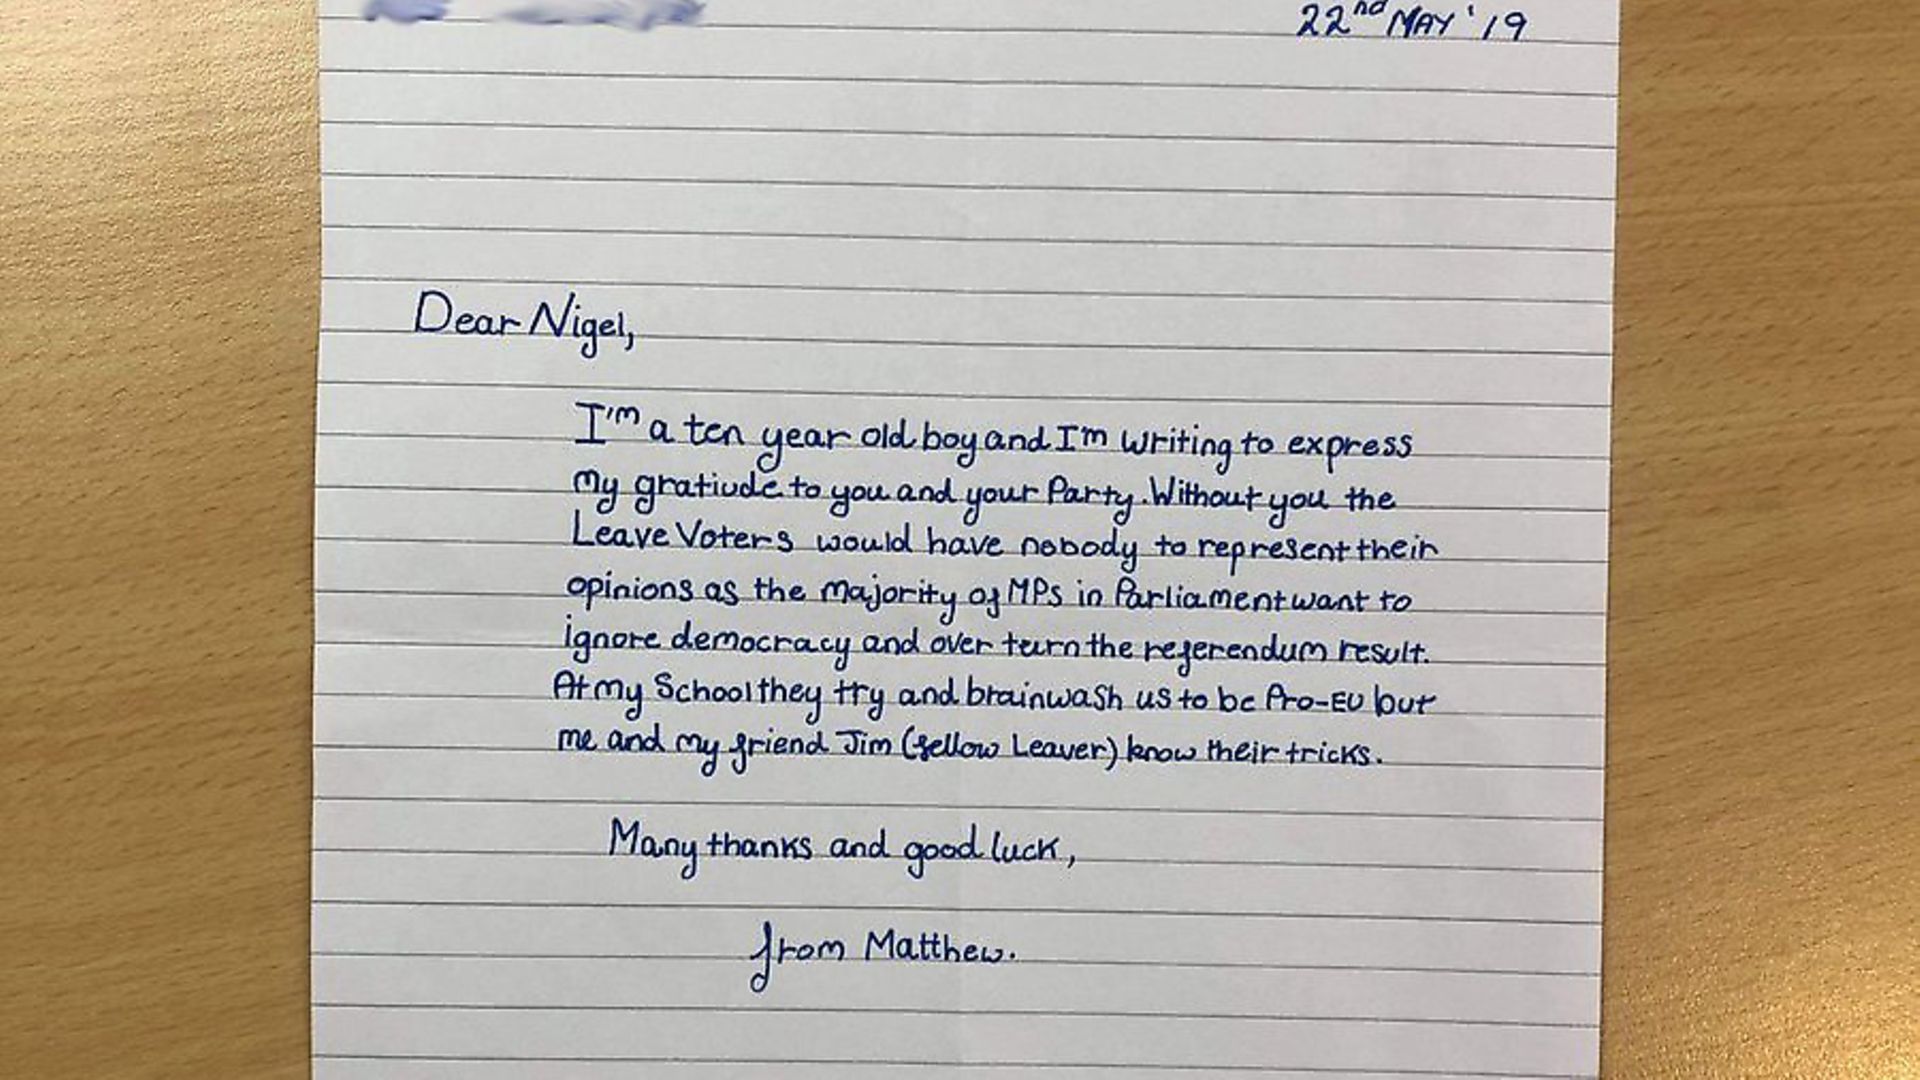 22nd MAY '19
Dear Nigel,
I'm a ten year old boy and I'm writing to express
my gratiude to you and your Party. Without you the
Leave Voters would have nobody to represent their
opinions as the majority of MPs in Parliament want to
ignore democracy and over turn the referendum result.
At my School they try and brainwash us to be Pro-EU but
me and my friend Jim (fellow Leaver) know their tricks.
Many thanks and good luck,
from Matthew.